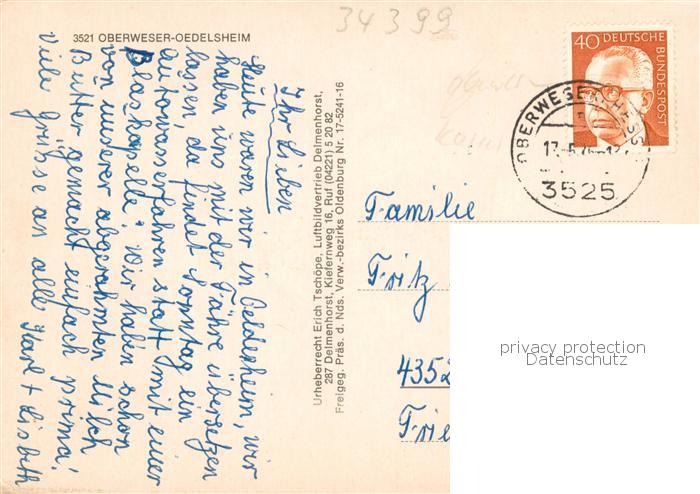 34399
3521 OBERWESER-OEDELSHEIM
Ihr Lieben
Heute waren wir in Oedelsheim, wir
haben uns mit der Fähre übersetzen
lassen, da findet Sonntag ein
Autowasserfahren statt mit einer
Blaskapelle. Wir haben schon
von unserer abgerahmten Milch
Butter gemacht einfach prima!
Viele Grüße an alle Karl + Lisbeth
Urheberrecht Erich Tschöpe, Luftbildvertrieb Delmenhorst,
287 Delmenhorst, Kiefernweg 16, Ruf (04221) 5 20 82
Freigeg. Präs. d. Nds. Verw.-bezirks Oldenburg Nr. 17-5241-16
40 DEUTSCHE
BUNDESPOST
OBERWESER
3525
Familie
Fritz
4352
Frie
privacy protection
Datenschutz